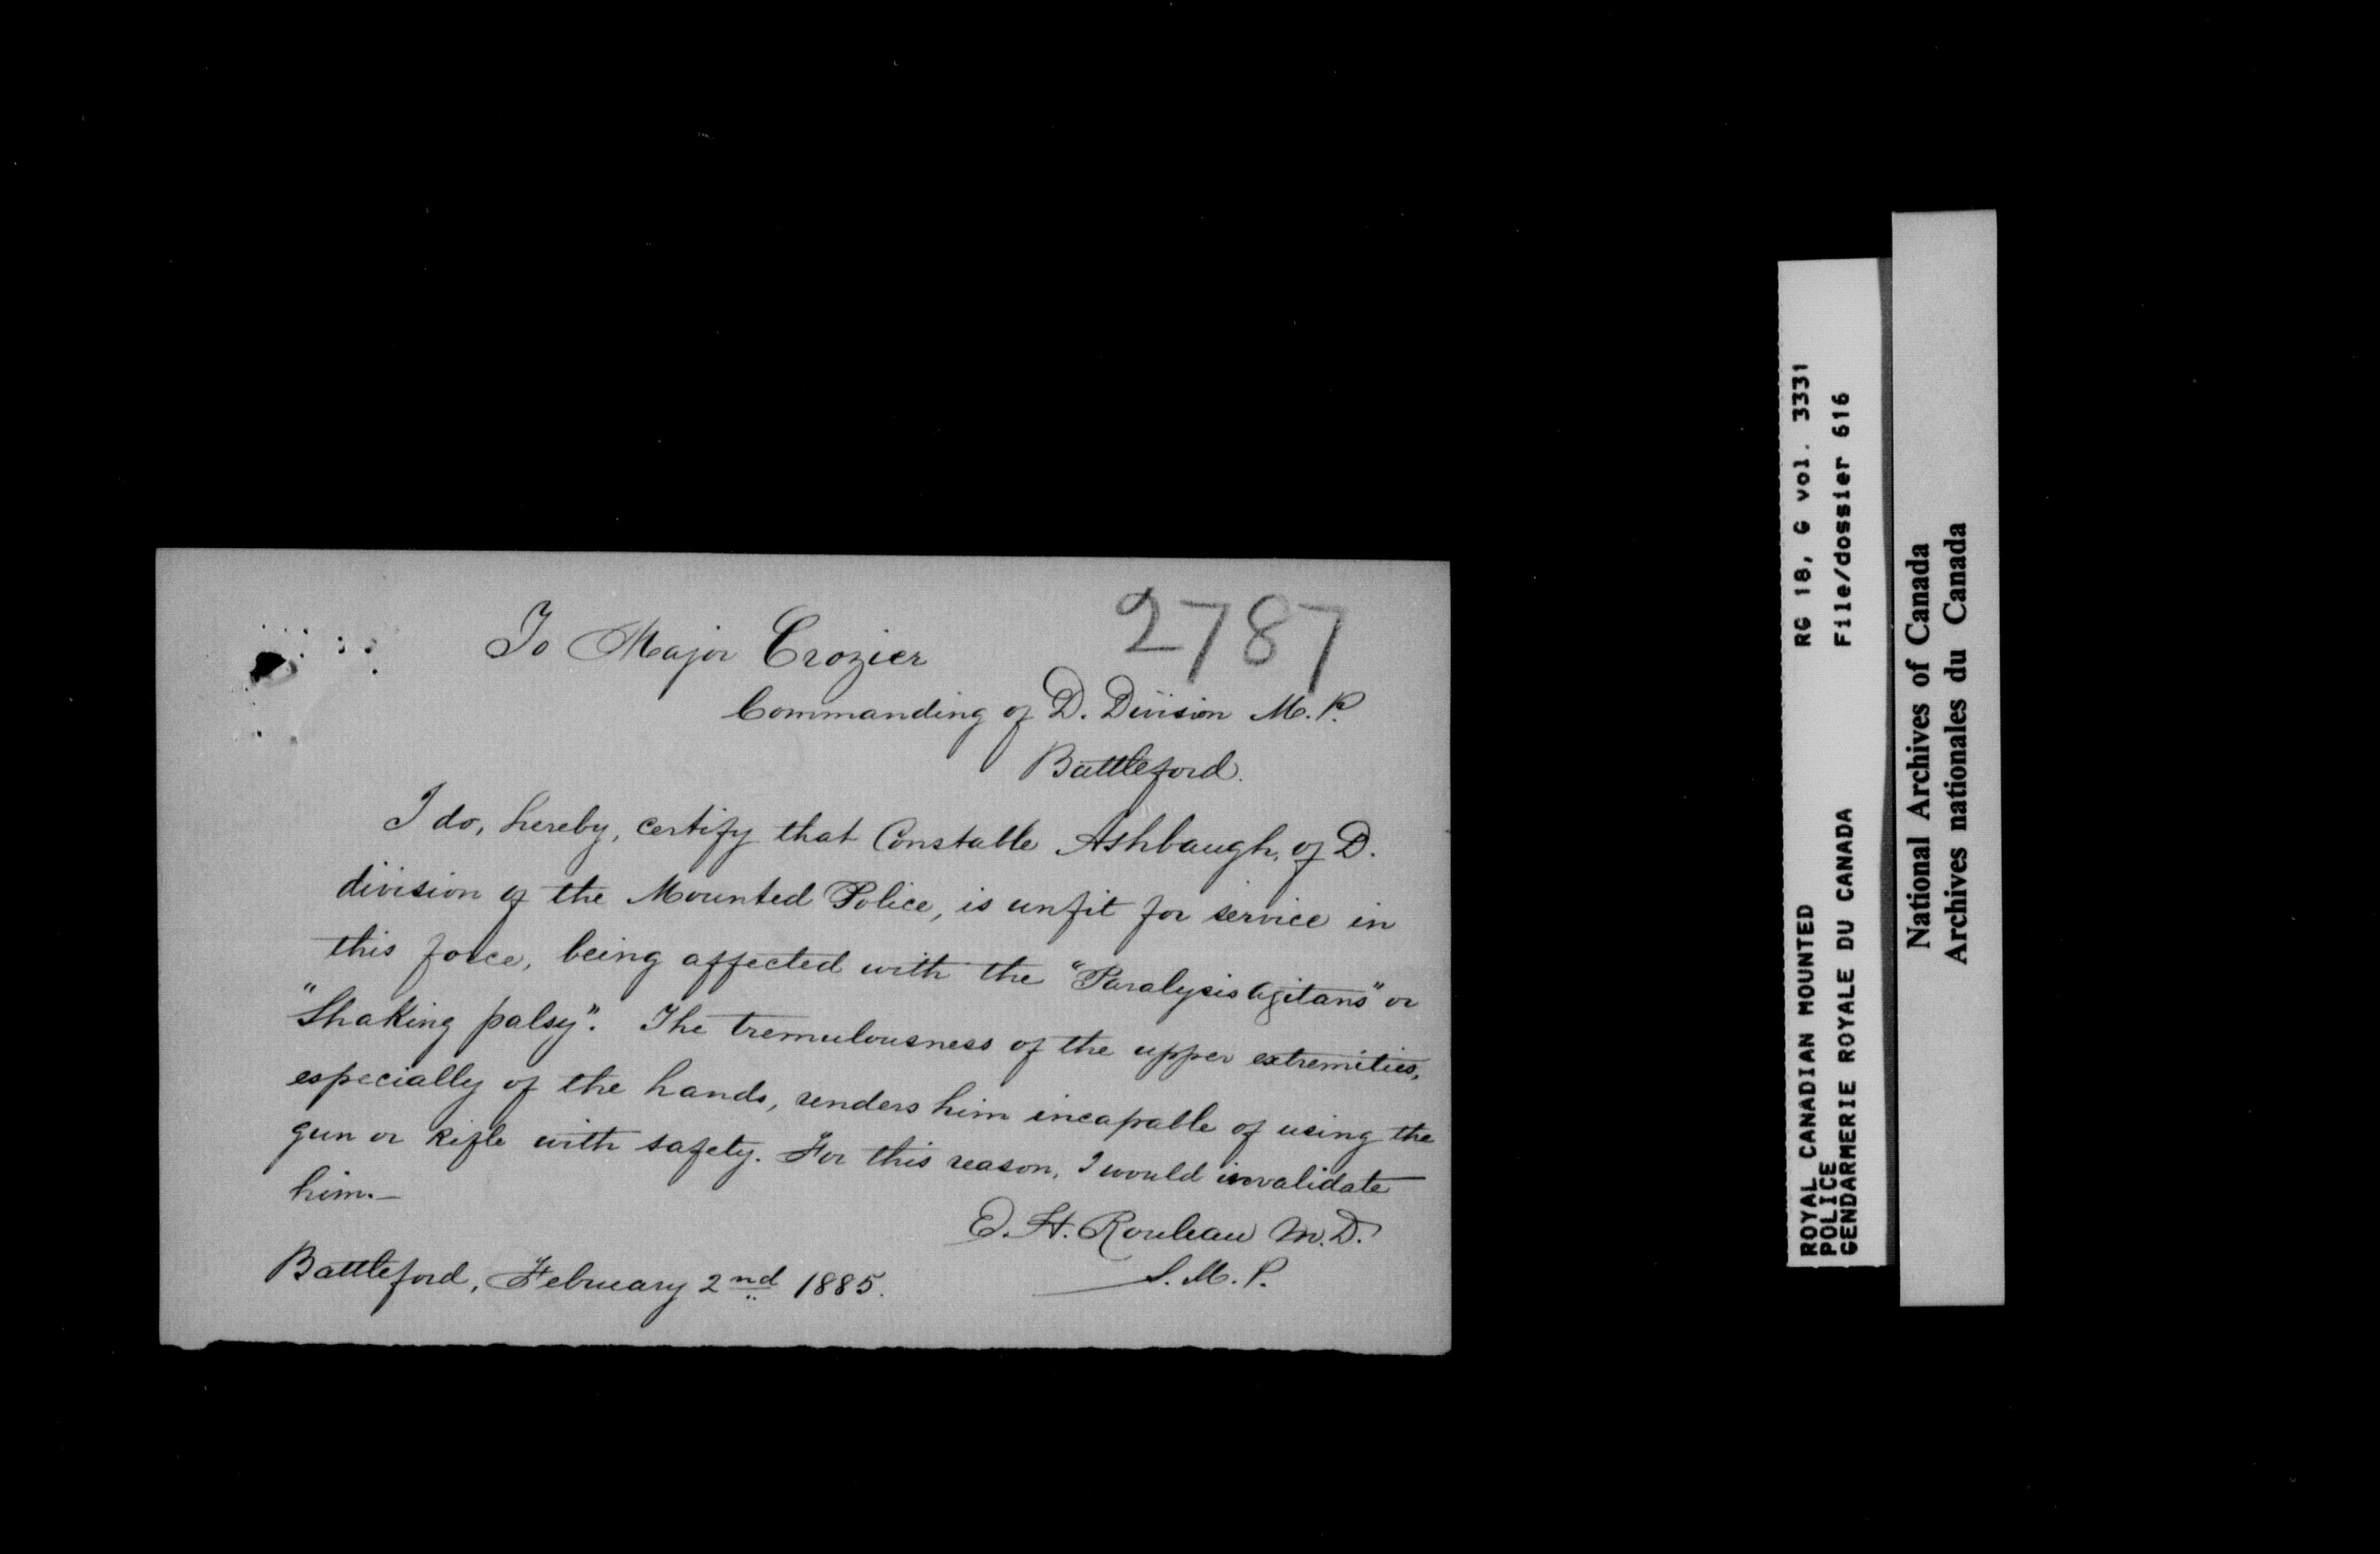 2787
To Major Crozier
Commanding of D. Division M. P.
Battleford.
I do, hereby, certify that Constable Ashbaugh, of D.
division of the Mounted Police, is unfit for service in
this force, being affected with the "Paralysis agitans" or
"Shaking palsy". The tremulousness of the upper extremities,
especially of the hands, renders him incapable of using the
gun or rifle with safety. For this reason, I would invalidate
him.—
E. H. Rouleau M.D.
S. M. P.
Battleford, February 2nd 1885.
RG 18, G vol. 3331
File/dossier 616
ROYAL CANADIAN MOUNTED
POLICE
GENDARMERIE ROYALE DU CANADA
National Archives of Canada
Archives nationales du Canada